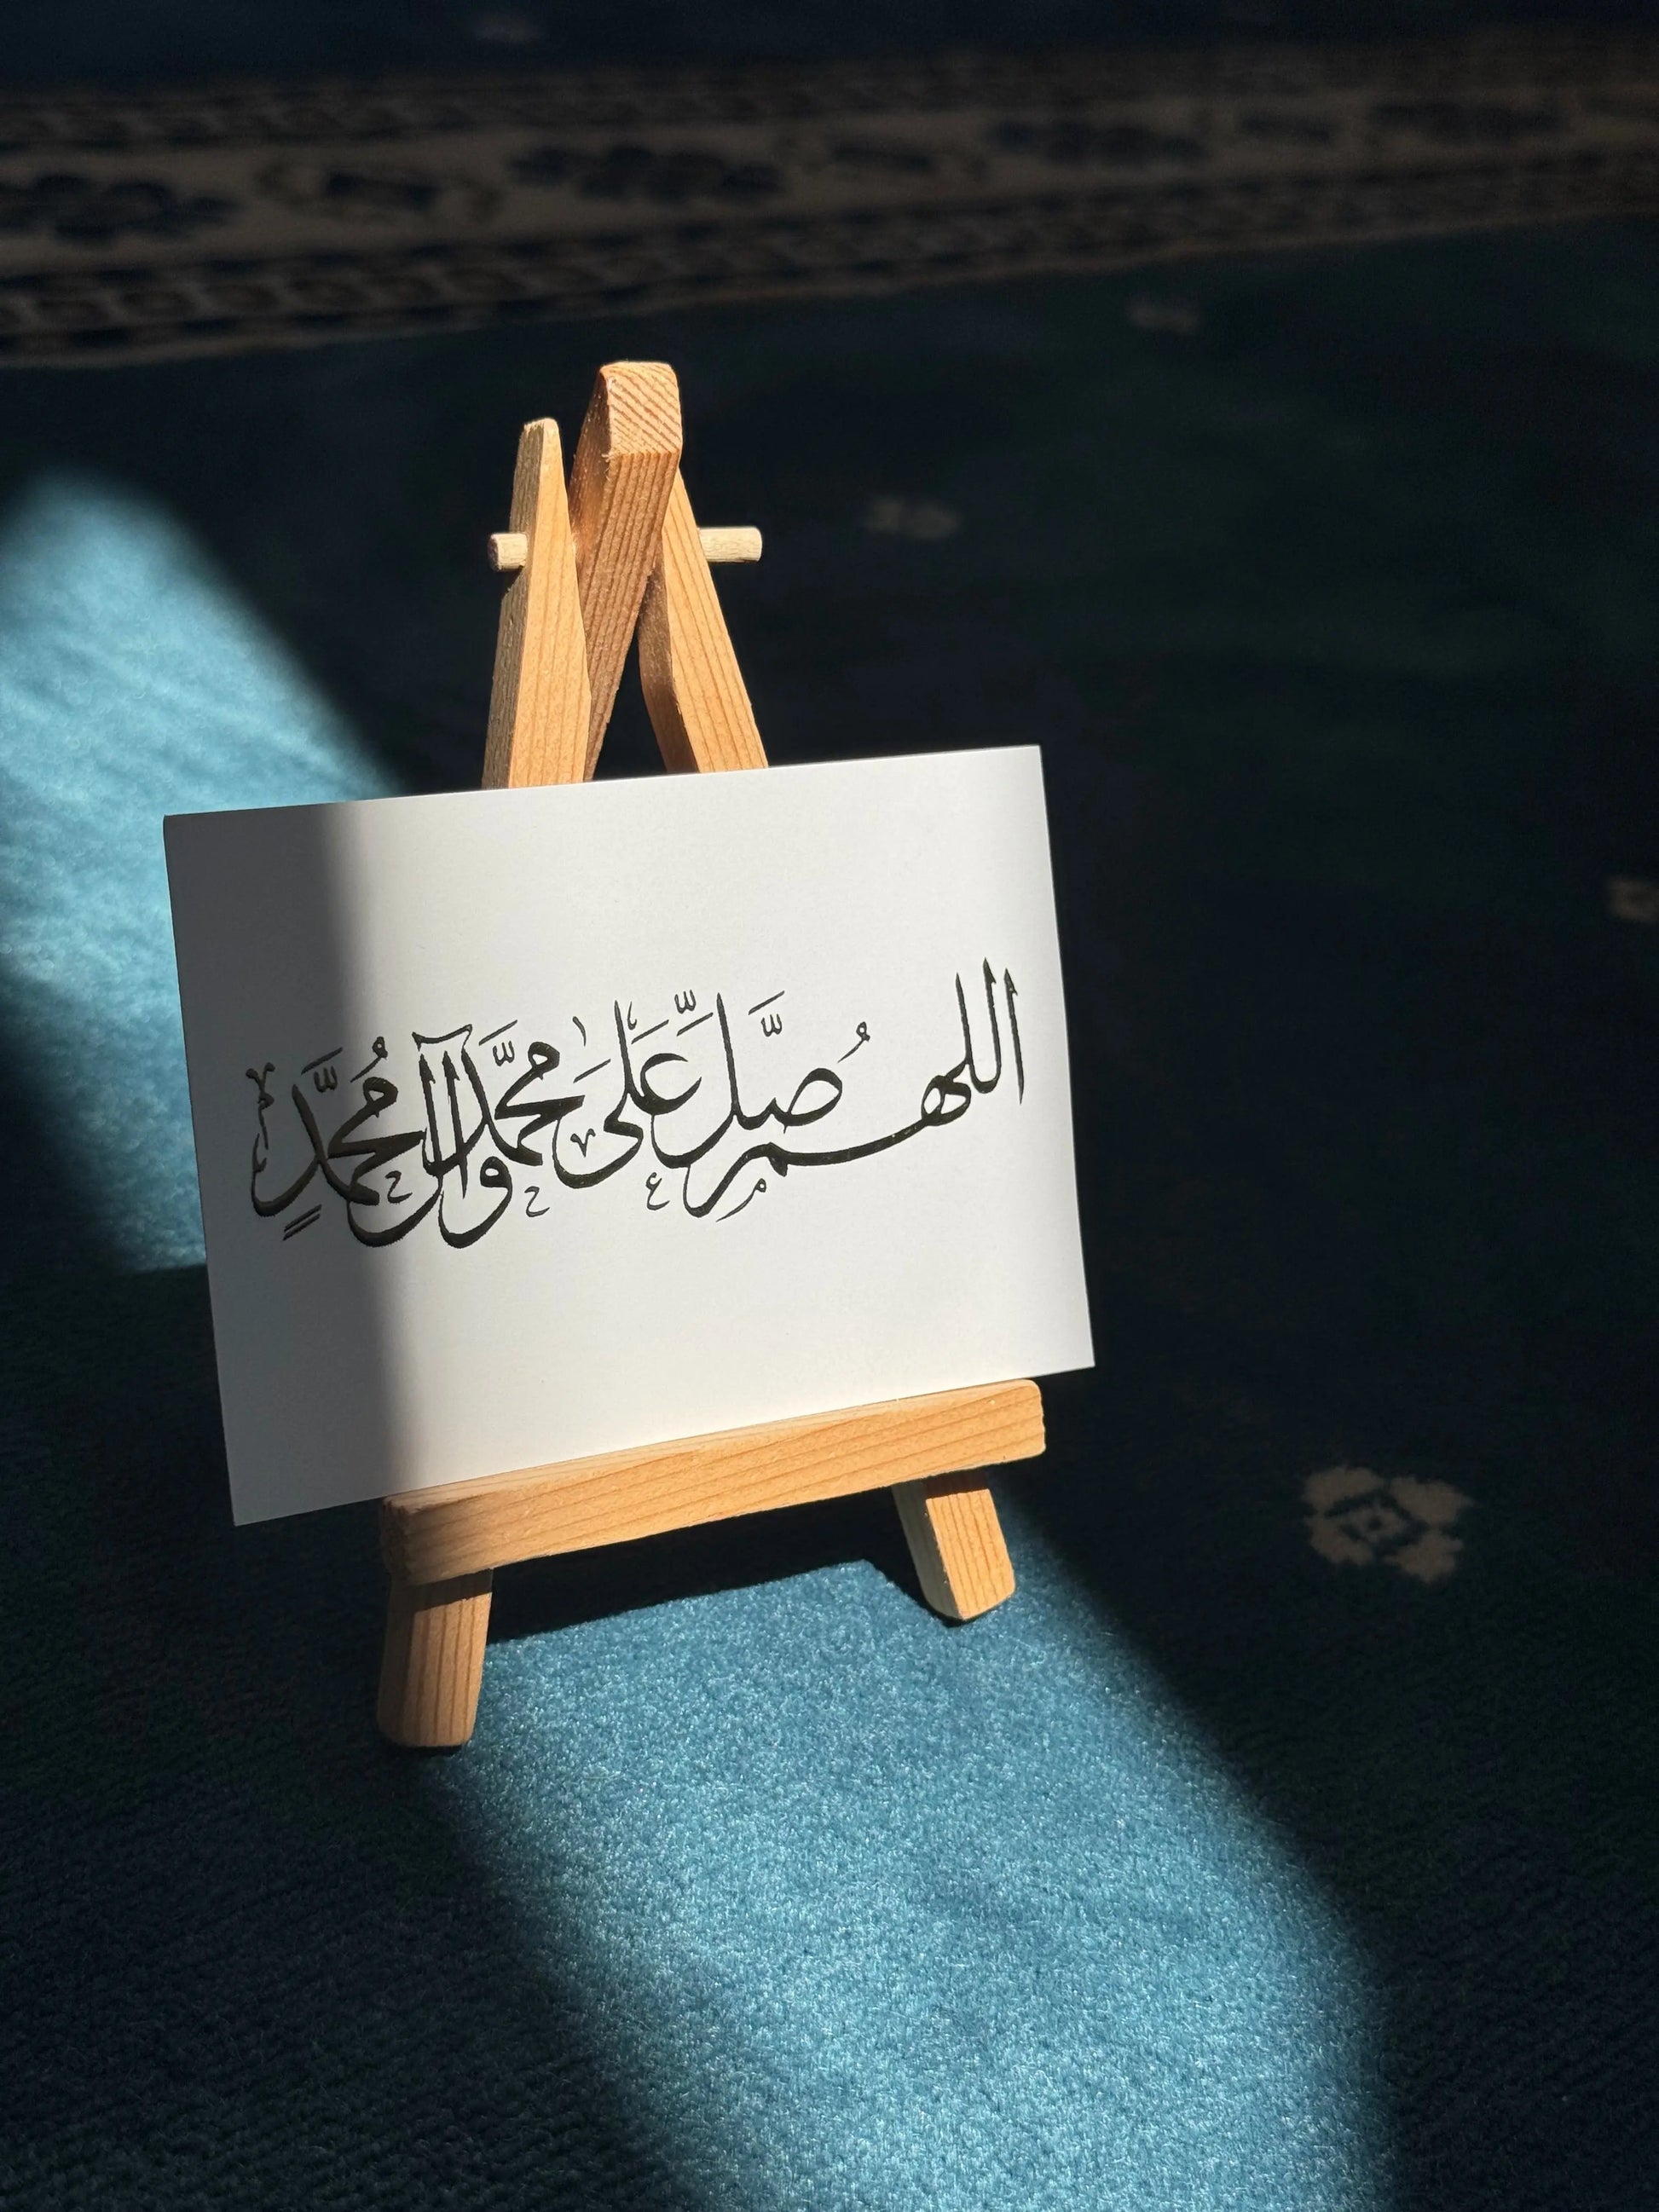 اللهم صَّل عَلى محمَّد وآل مُحمَّدٍ